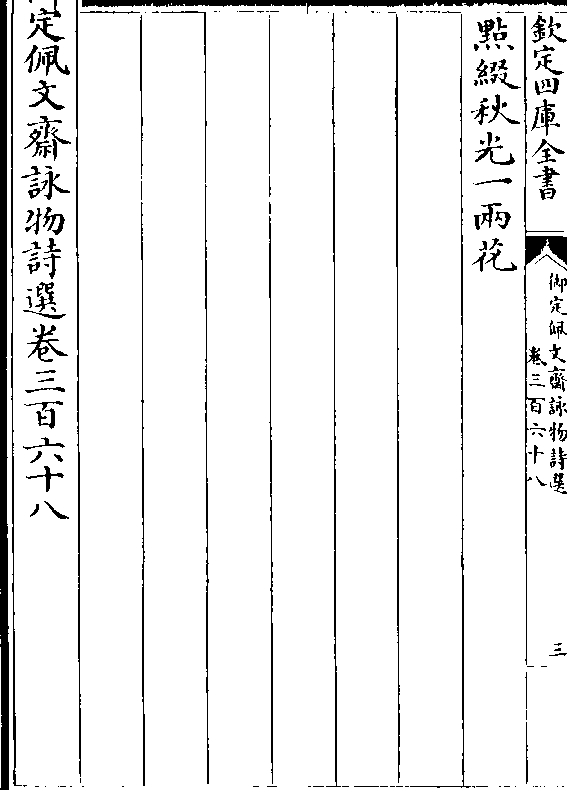 欽定四庫全書
御定佩文齋詠物詩選
卷三百六十八
三
點綴秋光一兩花
定佩文齋詠物詩選卷三百六十八